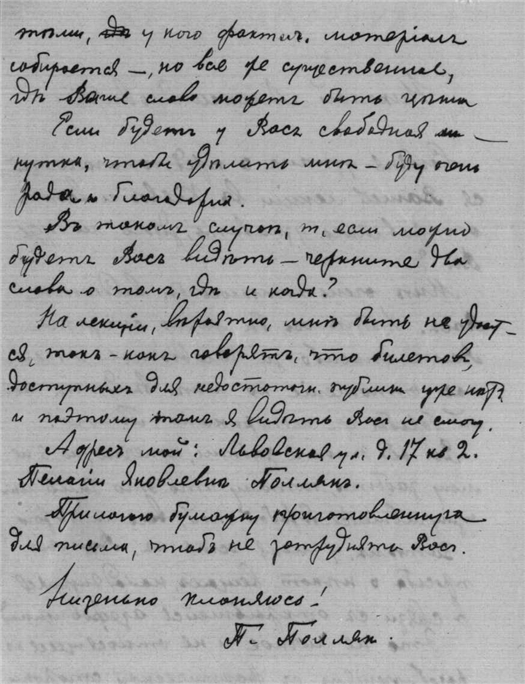 теми, у кого фактич. матеріалъ
собирается —, но все же существенное,
гдѣ Ваше слово можетъ быть цѣнно
Если будетъ у Васъ свободная ми-
нутка, чтобы удѣлить мнѣ — буду очень
рада и благодарна.
Въ такомъ случаѣ, т. если можно
будетъ Васъ видѣть — черкните два
слова о томъ, гдѣ и когда?
На лекціи, вѣроятно, мнѣ быть не удаст-
ся, такъ-какъ говорятъ, что билетовъ,
доступныхъ для недостаточн. публики уже нѣтъ
и поэтому тамъ я видѣть Васъ не смогу.
Адресъ мой: Львовская ул. д. 17 кв 2.
Пелагіи Яковлевнѣ Поллякъ.
Прилагаю бумажку приготовленную
для письма, чтобъ не затруднять Васъ.
Низенько кланяюсь!
П. Поллякъ.